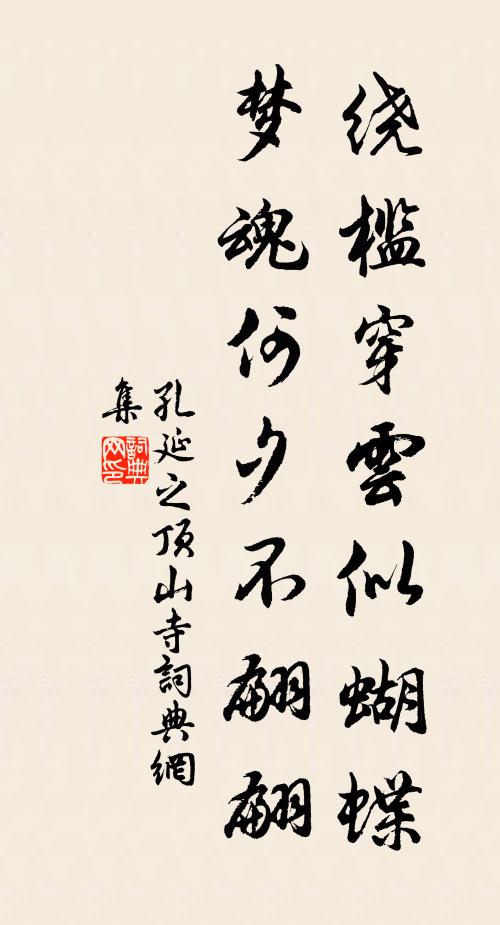 绕槛穿雲似蝴蝶
梦魂何夕不翩翩
孔延之顶山寺詞典網
集
詞典网印